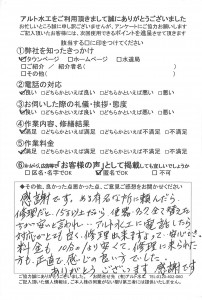 アルト水工をご利用頂きまして誠にありがとうございました
お忙しいところ誠に申し訳ございませんが、アンケートにご協力お願いします
ご記入頂いたお客様には、次回使用できるポイントを進呈させて頂きます
該当する□に印をつけてください
①弊社を知ったきっかけ
☑タウンページ □ホームページ □水道局
□ご紹介（ご紹介者名 ）
□その他（ ）
②電話の対応
☑良い □どちらかといえば良い □どちらかといえば悪い □悪い
③お伺いした際の礼儀・挨拶・態度
☑良い □どちらかといえば良い □どちらかといえば悪い □悪い
④作業内容、修繕結果
☑満足 □どちらかといえば満足 □どちらかといえば不満足 □不満足
⑤作業料金
☑満足 □どちらかといえば満足 □どちらかといえば不満足 □不満足
「お客様の声」として掲載しても宜しいでしょうか
□区名・名字でOK ☑匿名でOK □不可
◆その他、良かった点悪かった点、ご意見ご感想をお聞かせください
感謝です。ある有名な所に頼んだら、
修理だと
と言われ、アルト水工に電話したら
対応がとても良く、修理出来ますよって
料金も 10分の1
より安くて、修理に来られた
方も正直で感じの良い方でした。
ありがとうございます 感謝です